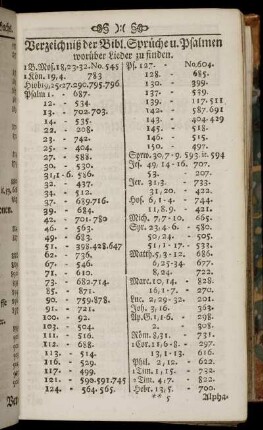 Verzeichniß der Bibl. Sprüche u. Psalmen
worüber Lieder zu finden.
1 B. Mos. 18, 23-32. No. 545
1 Kön. 19, 4. 783
Hiob 19, 25-27. 290. 795. 796
Psalm 1. - 687.
12. - 534.
13. - 702. 703.
14. - 535.
22. - 208.
23. - 742.
25. - 404.
27. - 588.
30. - 530.
31, 1-6. 586.
32. - 437.
34. - 512.
37. - 689. 716.
39. - 684.
42. - 701. 780
46. - 563.
49. - 683.
51. - 398. 428. 647
62. - 735.
67. - 546.
71. - 610.
73. - 682. 714.
85. - 871.
90. - 759. 878.
91. - 721.
100. - 92.
103. - 504.
111. - 516.
112. - 688.
113. - 514.
116. - 529.
117. - 499.
121. - 590. 591. 745
124. - 564. 565.
Ps. 127. - No. 604.
128. - 685.
130. - 399.
137. - 539.
139. - 117. 511
142. - 587. 691
143. - 404. 429
145. - 518.
146. - 515.
150. - 497.
Sprw. 30, 7-9. 593. it. 594
Jes. 49, 14-16. 707.
53. - 207.
Jer. 31, 3. - 733.
31, 20. - 422.
Hos. 6, 1-4. - 744.
11, 8. 9. - 421.
Mich. 7, 7-10. 665.
Syr. 23, 4-6. - 580.
50, 24. - 505.
51, 1-17. - 531.
Matth. 5, 3-12. 686.
6, 25-34. 677.
8, 24. - 722.
Marc. 10, 14. - 828.
16, 1-7. - 270.
Luc. 2, 29-32. 201.
Joh. 3, 16. - 363.
Ap. G. 1, 1-6. - 298.
2. - 308.
Röm. 8, 31. - 731.
1 Cor. 11, 6-8. - 297.
13, 1-13. - 616.
Phil. 2, 12. - 622.
1 Tim. 1, 15. - 732.
2 Tim. 4, 7. - 822.
Hebr. 13, 5. - 700.
** 5 Alpha-